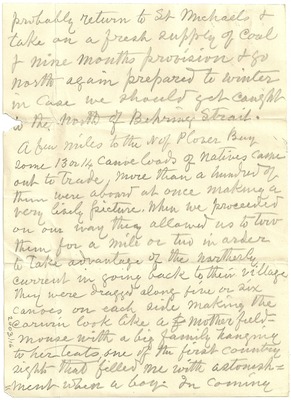 probably return to St Michaels &
take on a fresh supply of Coal
& nine months provision & go
north again prepared to winter
in case we should get caught
in the North of Behring Strait.
A few miles to the N of Plover Bay
some 13 or 14 canoe loads of natives came
out to trade, more than a hundred of
them were aboard at once making a
very lively picture. When we proceeded
on our way they allowed us to tow
them for a mile or two in order
to take advantage of the northerly
current in going back to their village
They were dragged along five or six
canoes on each side making the
Corwin look like a mother field-
mouse with a big family hanging
to her teats, one of the first country
sights that filled me with astonish-
=ment when a boy. In coming